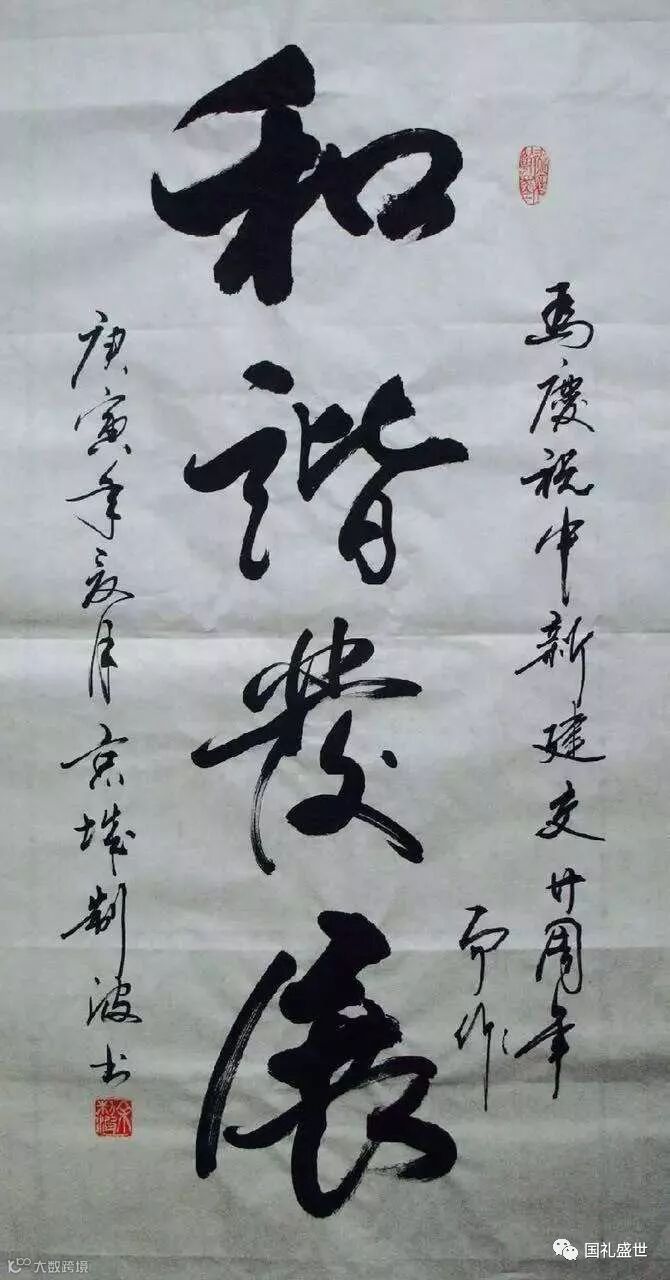 為慶祝中新建交廿周年
而作
和
諧
發
展
庚寅年夏月京城制波书
大数跨境
国礼盛世